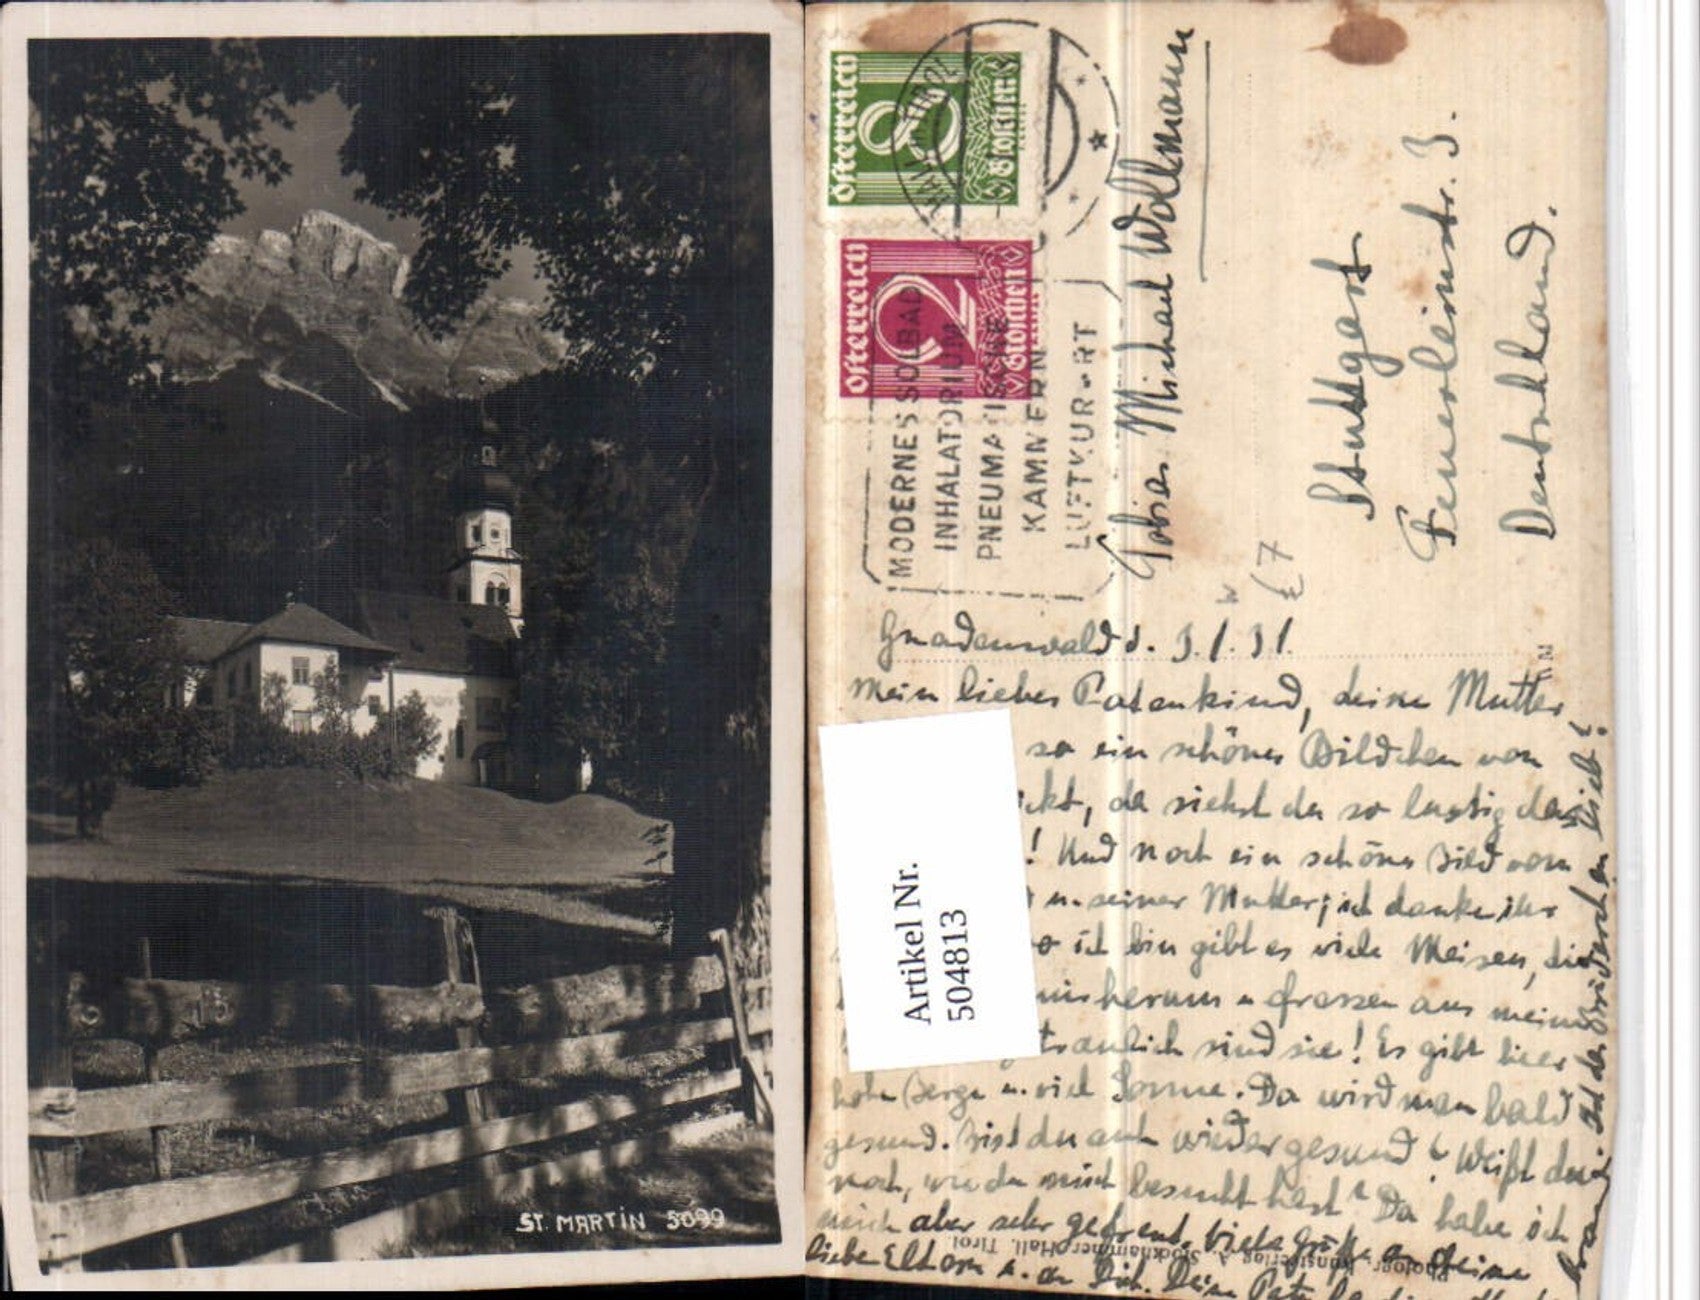 ST. MARTIN 5099
Österreich
8
Groschen
Österreich
12
Groschen
HALL TIROL
MODERNES SOLBAD
INHALATORIUM
PNEUMATISCHE
KAMMERN
LUFTKUR-ORT
Tobias Michael Wollmann
Stuttgart
Feuerleinstr. 3.
Deutschland.
€ 7
Artikel Nr.
504813
Gnadenwald d. 3.1.31.
Mein liebes Patenkind, deine Mutter
so ein schönes Bildchen von
ckt, da siehst du so lustig
! Und noch ein schönes Bild vom
u. seiner Mutter; ich danke ihr
o ich bin gibt es viele Meisen, die
herum u. fressen aus meiner
traulich sind sie! Es gibt hier
hohe Berge u. viel Sonne. Da wird man bald
gesund. Bist du auch wieder gesund? Weißt du
noch, wie du mich besucht hast? Da habe ich
mich aber sehr gefreut. Viele Grüße an deine
liebe Eltern u. an Dich. Deine
Hat das Brüderchen lieb!
Photogr. Kunstverlag A. Stockhammer Hall, Tirol.